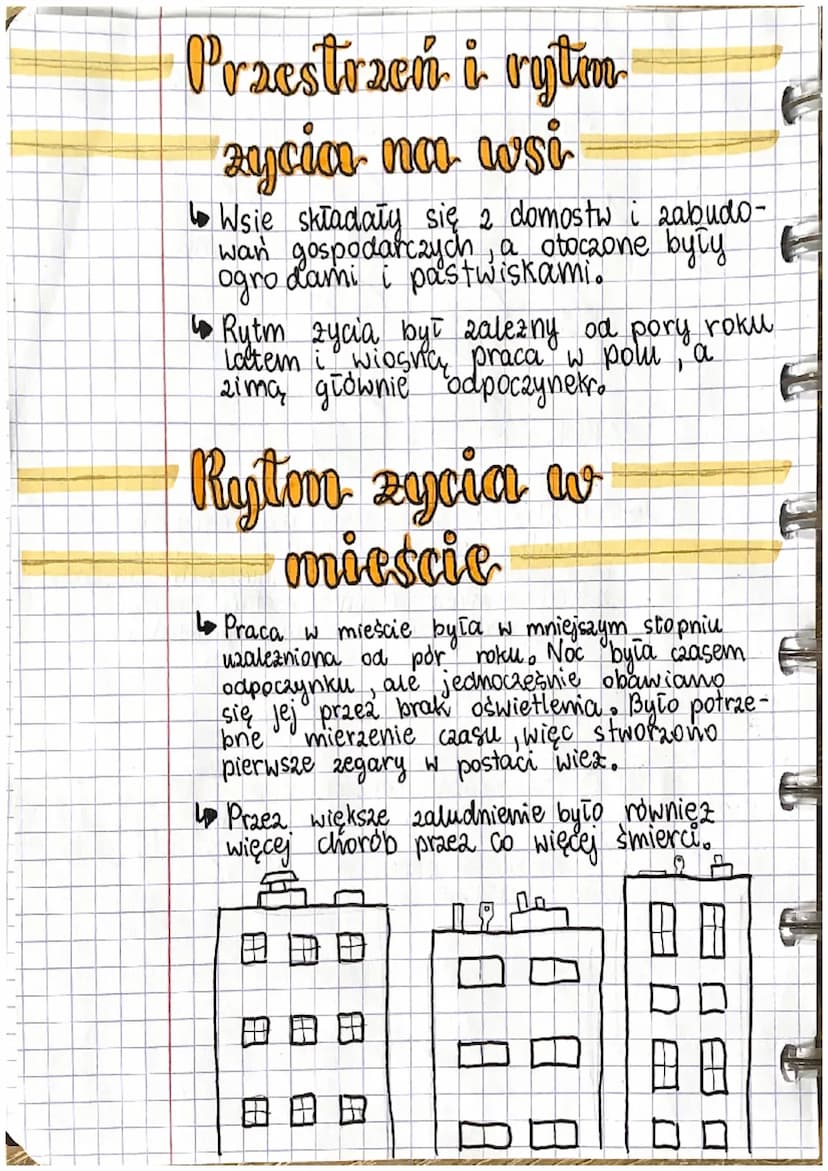 Przestrzeń i rytm
życia na wsi
↳ Wsie składały się z domostw i zabudo-
wań gospodarczych, a otoczone były
ogrodami i pastwiskami.
↳ Rytm życia był zależny od pory roku
latem i wiosną praca w polu, a
zimą głównie odpoczynek.
Rytm życia w
mieście
↳ Praca w mieście była w mniejszym stopniu
uzależniona od pór roku. Noc była czasem
odpoczynku, ale jednocześnie obawiano
się jej przez brak oświetlenia. Było potrze-
bne mierzenie czasu, więc stworzono
pierwsze zegary w postaci wież.
↳ Przez większe zaludnienie było również
więcej chorób przez co więcej śmierci.